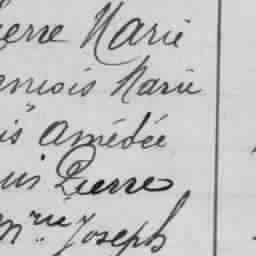 ierre Marie
ançois Marie
is Amédée
uis Pierre
m. rie Joseph